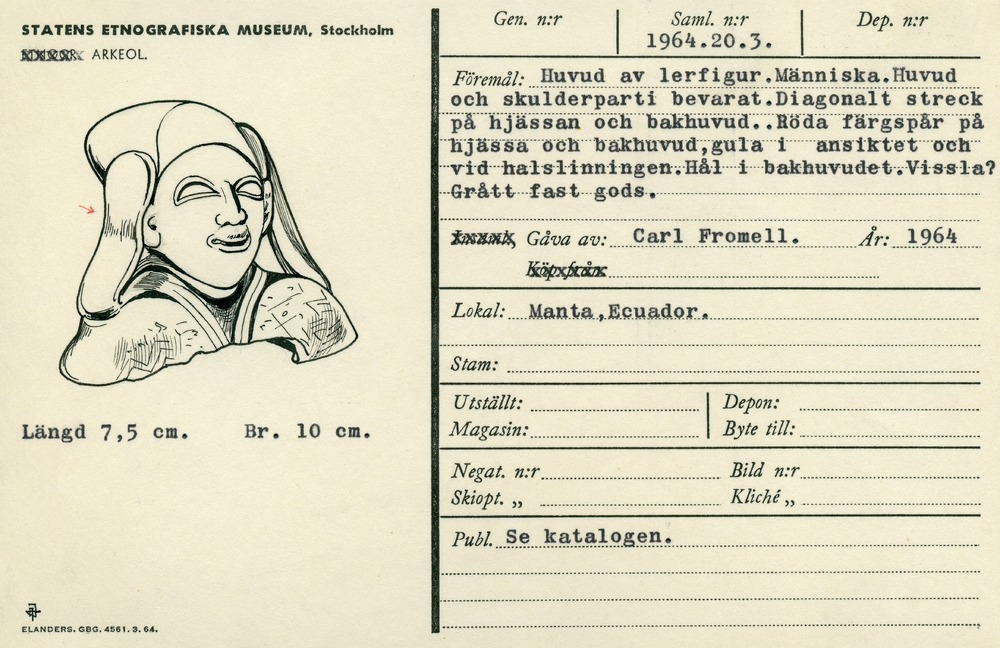 STATENS ETNOGRAFISKA MUSEUM, Stockholm
ARKEOL.
Längd 7,5 cm. Br. 10 cm.
ELANDERS. GBG. 4561. 3. 64.
Gen. n:r
Saml. n:r
1964.20.3.
Dep. n:r
Föremål: Huvud av lerfigur.Människa.Huvud
och skulderparti bevarat.Diagonalt streck
på hjässan och bakhuvud..Röda färgspår på
hjässa och bakhuvud,gula i ansiktet och
vid halslinningen.Hål i bakhuvudet.Vissla?
Grått fast gods.
Gåva av: Carl Fromell. År: 1964
Köp från
Lokal: Manta,Ecuador.
Stam:
Utställt: Depon:
Magasin: Byte till:
Negat. n:r Bild n:r
Skiopt. „ Kliché „
Publ. Se katalogen.